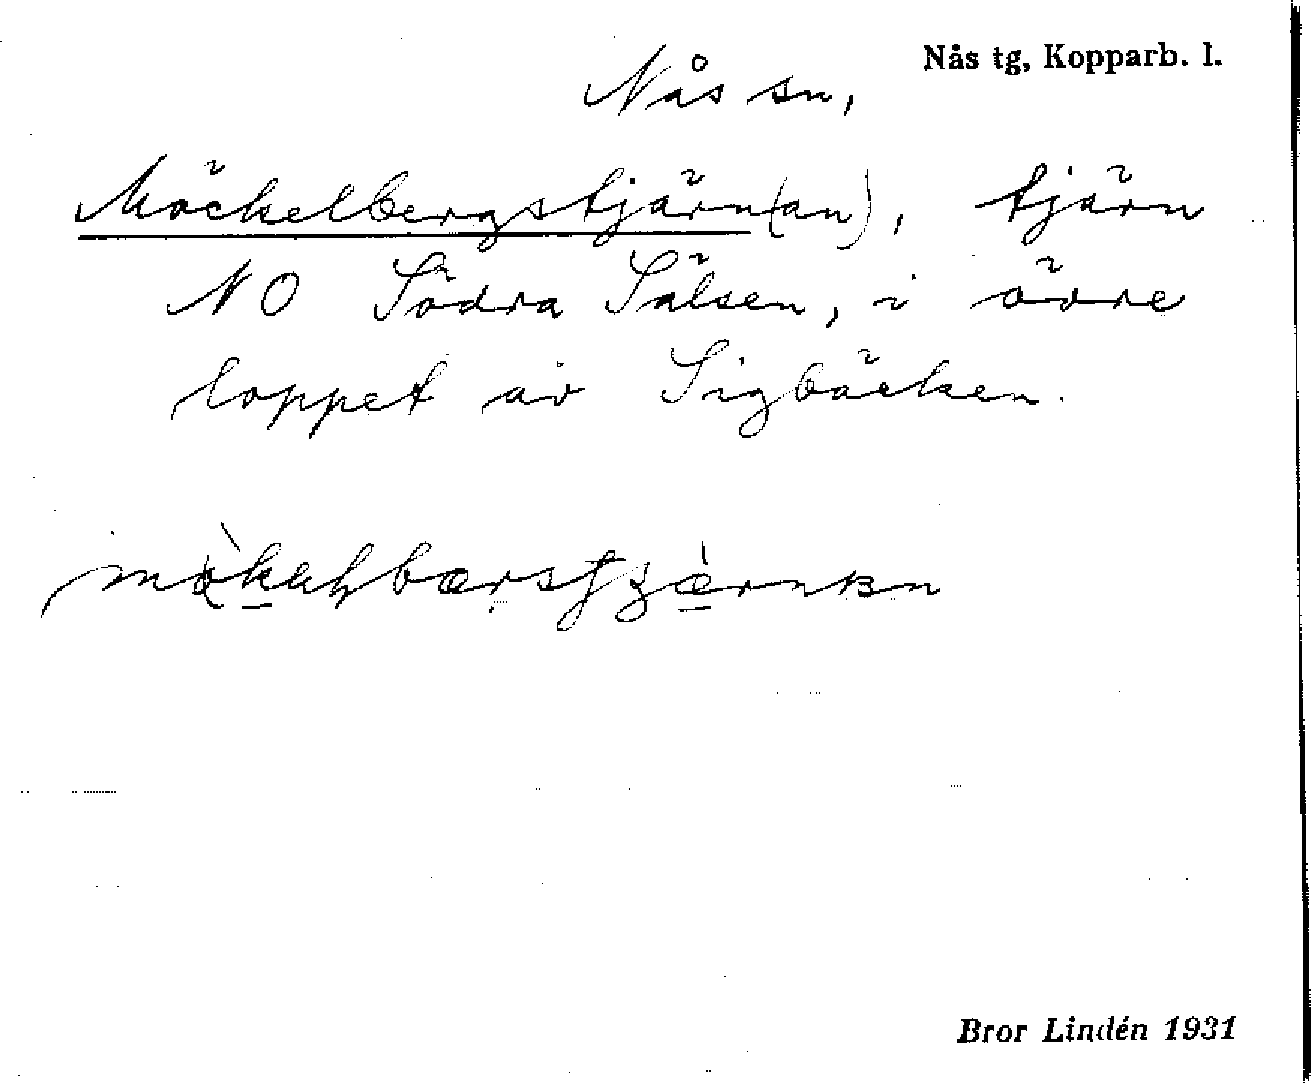 Nås tg, Kopparb. l.
Nås sn,
Möckelbergstjärn(an), tjärn
NO Södra Sälsen, i övre
loppet av Sigbäcken.
Bror Lindén 1931